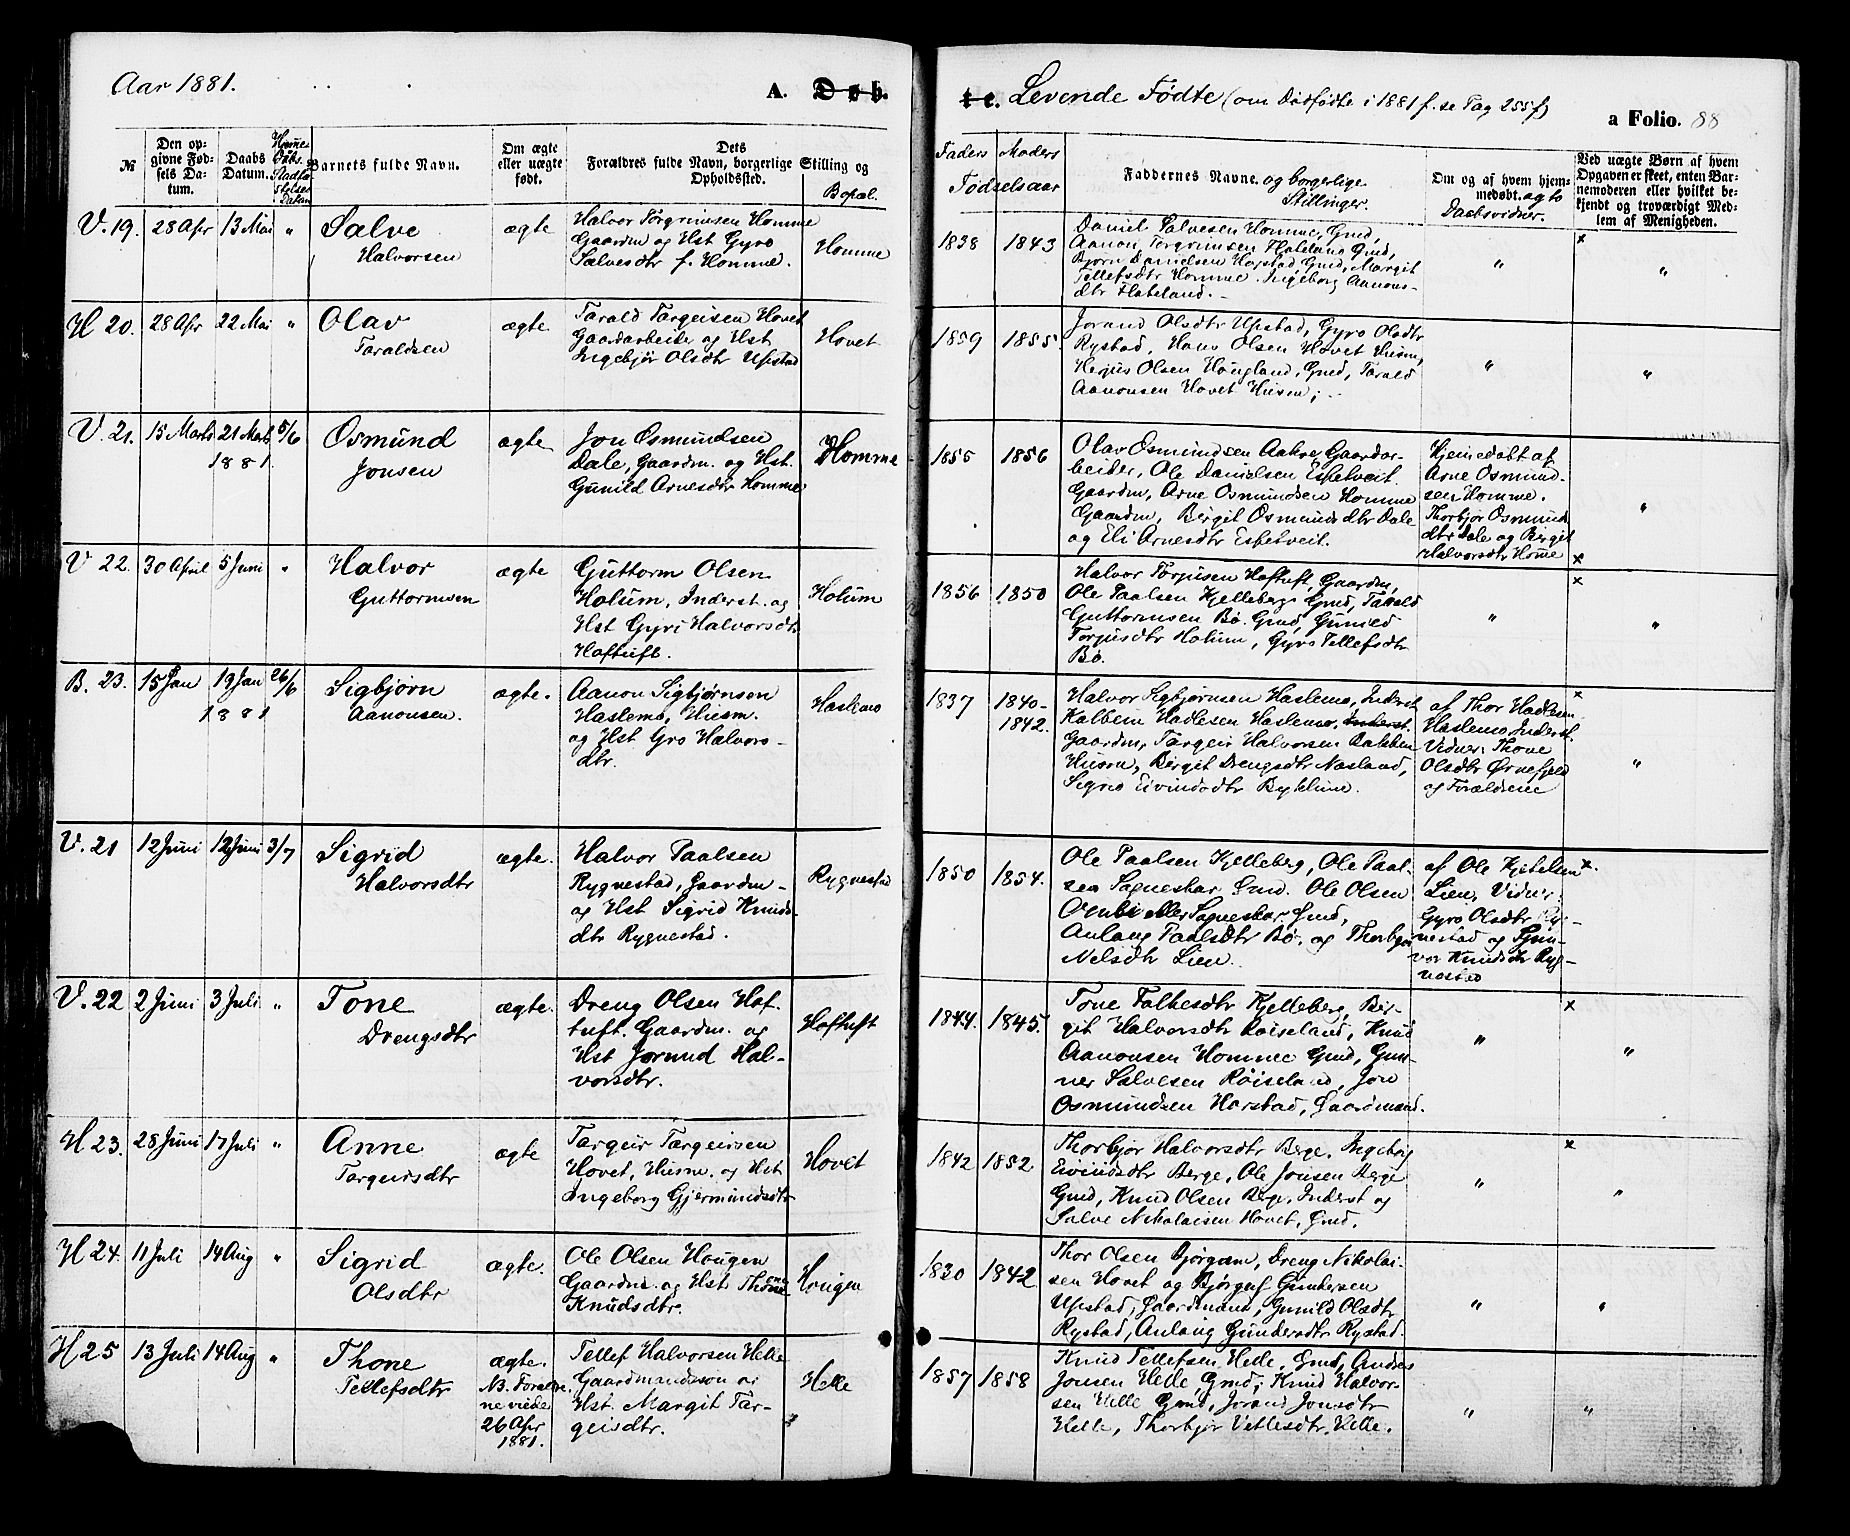 Aar 1881.
A. Døb-
te. Levende Fødte (om Dødfødte i 1881 f. se Pag 255 f)
a Folio. 88
№
Den op-
givne Fød-
sels Da-
tum.
Daabs
Datum.
Hjemme
Daabs
Stadfæ-
stelses
Datum
Barnets fulde Navn.
Om ægte
eller uægte
født.
Dets
Forældres fulde Navn, borgerlige Stilling og
Opholdssted.
Bopæl.
Faders Moders
Fødselsaar
Faddernes Navne og borgerlige
Stillinger.
Om og af hvem hjem-
medøbt. ægte
Daabsvidner.
Ved uægte Børn af hvem
Opgaven er skeet, enten Bar-
nemoderen eller hvilket be-
kjendt og troværdigt Med-
lem af Menigheden.
V. 19. 28 Apr 13 Mai "
Salve
Halvorsen
ægte
Halvor Torgrimsen Homme
Gaardm og Hst Gyro
Salvesdtr f. Homme.
Homme
1838 1843
Daniel Salvesen Homme, Gmd,
Aanon Torgrimsen Flateland Gmd,
Bjorn Danielsen Harstad Gmd, Margit
Tellefsdtr Homme. Ingeborg Aanons-
dtr Flateland.-
" × "
H 20. 28 Apr 22 Mai "
Olav
Taraldsen
ægte
Tarald Targeisen Hovet
Gaardarbeider og Hst
Ingebjør Olsdtr Upstad
Hovet
1859 1855.
Jorand Olsdtr Upstad, Gyro Olsdtr
Rystad, Hans Olsen Hovet Husm,
Herjus Olsen Haugland, Gmd, Tarald
Aanonsen Hovet Husm; -
" "
V. 21. 15 Marts 21 Marts 5/6
1881.
Osmund
Jonsen
ægte
Jon Osmundsen
Dale, Gaardm. og Hst.
Gunild Arnesdtr Homme
Homme
1855 1856
Olav Osmundsen Aakre, Gaardar-
beider, Ole Danielsen Espetveit
Gaardm, Arne Osmundsen Homme
Gaardm, Bergit Osmundsdtr Dale
og Eli Arnesdtr Espetveit.
Hjemedøbt af
Arne Osmund-
sen Homme.
Thorbjør Osmunds
dtr Dale og Birgit
Halvorsdtr Home
" ×
V 22. 30 April 5 Juni "
Halvor
Guttormsen
ægte
Guttorm Olsen
Holum, Inderst. og
Hst Gyri Halvorsdtr
Haftuft.
Holum
1856 1850
Halvor Torjusen Haftuft, Gaardm,
Ole Paalsen Kjelleberg Gmd, Tarald
Guttormsen Bø. Gmd, Gunild
Torjusdtr Holum, Gyro Tellefsdtr
Bø.
" × "
B. 23. 15 Jan 19 Jan 26/6
1881
Sigbjørn
Aanonsen.
ægte.
Aanon Sigbjørnsen
Haslemo, Husm.
og Hst Gro Halvors-
dtr.
Haslemo
1837 1840-
1842.
Halvor Sigbjørnsen Haslemo, Inderst
Kolbein Hadlesen Haslemo, Inderst.
Gaardm, Targeir Halvorsen Bakken
Husm, Birgit Drengsdtr Næsland,
Sigrid Eivindsdtr Byklum.
af Thor Hadlesen
Haslemo, Inderst.
Vidner: Thone
Olsdtr Ørnefjeld
og Forældrene
× "
V. 21 12 Juni 12 Juni 3/7
Sigrid
Halvorsdtr
ægte.
Halvor Paalsen
Rygnestad, Gaardm-
og Hst Sigrid Knuds-
dtr Rygnestad.
Rygnestad
1850 1854.
Ole Paalsen Kjelleberg, Ole Paal-
sen Sagneskar Gmd. Ole Olsen
eller Sagneskar Gmd,
Anlaug Paalsdtr Bø. og Thorbjør
Nelsdtr Lien.
af Ole Kjetelsen
Lien, Vidner.
Gyro Olsdtr Ryg-
nestad og Gun-
vor Knudsdtr Ryg-
nestad
×.
V. 22 2 Juni 3 Juli "
Tone
Drengsdtr
ægte.
Dreng Olsen Haf-
tuft. Gaardm. og
Hst Jorund Hal-
vorsdtr.
Haftuft
1844. 1845.
Tone Falkesdtr Kjelleberg, Bir-
git Halvorsdtr Røiseland, Knud
Aanonsen Homme Gmd, Gun-
ner Salvesen Røiseland, Jon
Osmundsen Harstad, Gaardmænd.
" × "
H 23. 28 Juni 17 Juli "
Anne
Targeirsdtr
ægte
Targeir Targeirsen
Hovet, Husm. og Hst
Ingeborg Gjermundsdtr
Hovet
1842 1852
Thorbjør Halvorsdtr Berge, Ingebrg
Eivindsdtr Berge, Ole Jonsen Berge
Gmd, Knud Olsen Berge, Inderst og
Salve Nikolaisen Hovet, Gmd.
" × "
H 24. 11 Juli 14 Aug "
Sigrid
Olsdtr
ægte.
Ole Olsen Hougen
Gaardm. og Hst. Thone
Knudsdtr.
Hougen
1830 1842
Thor Olsen Bjørgum, Dreng Nikolai-
sen Hovet og Bjørguf Gundersen
Upstad, Gaardmænd, Gunild Olsdtr
Rystad, Anlaug Gundersdtr Rystad.
" "
H 25 13 Juli 14 Aug "
Thone
Tellefsdtr
ægte.
NB. Foræld-
ne viede
26 Apr
1881.
Tellef Halvorsen Helle
Gaardmandssøn og
Hst. Margit Tar-
geisdtr.
Helle
1857 1858
Knud Tellefsen Helle, Gmd, Andres
Jonsen Helle, Gmd; Knud Halvor-
sen Helle Gmd, Jorand Jonsdtr
Helle, Thorbjør Vetlesdtr Helle.
" "